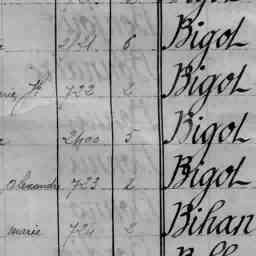 2121 6 Bigot
722 2 Bigot
2400 5 Bigot
Alexandre 723 2 Bigot
marie 724 2 Bihan